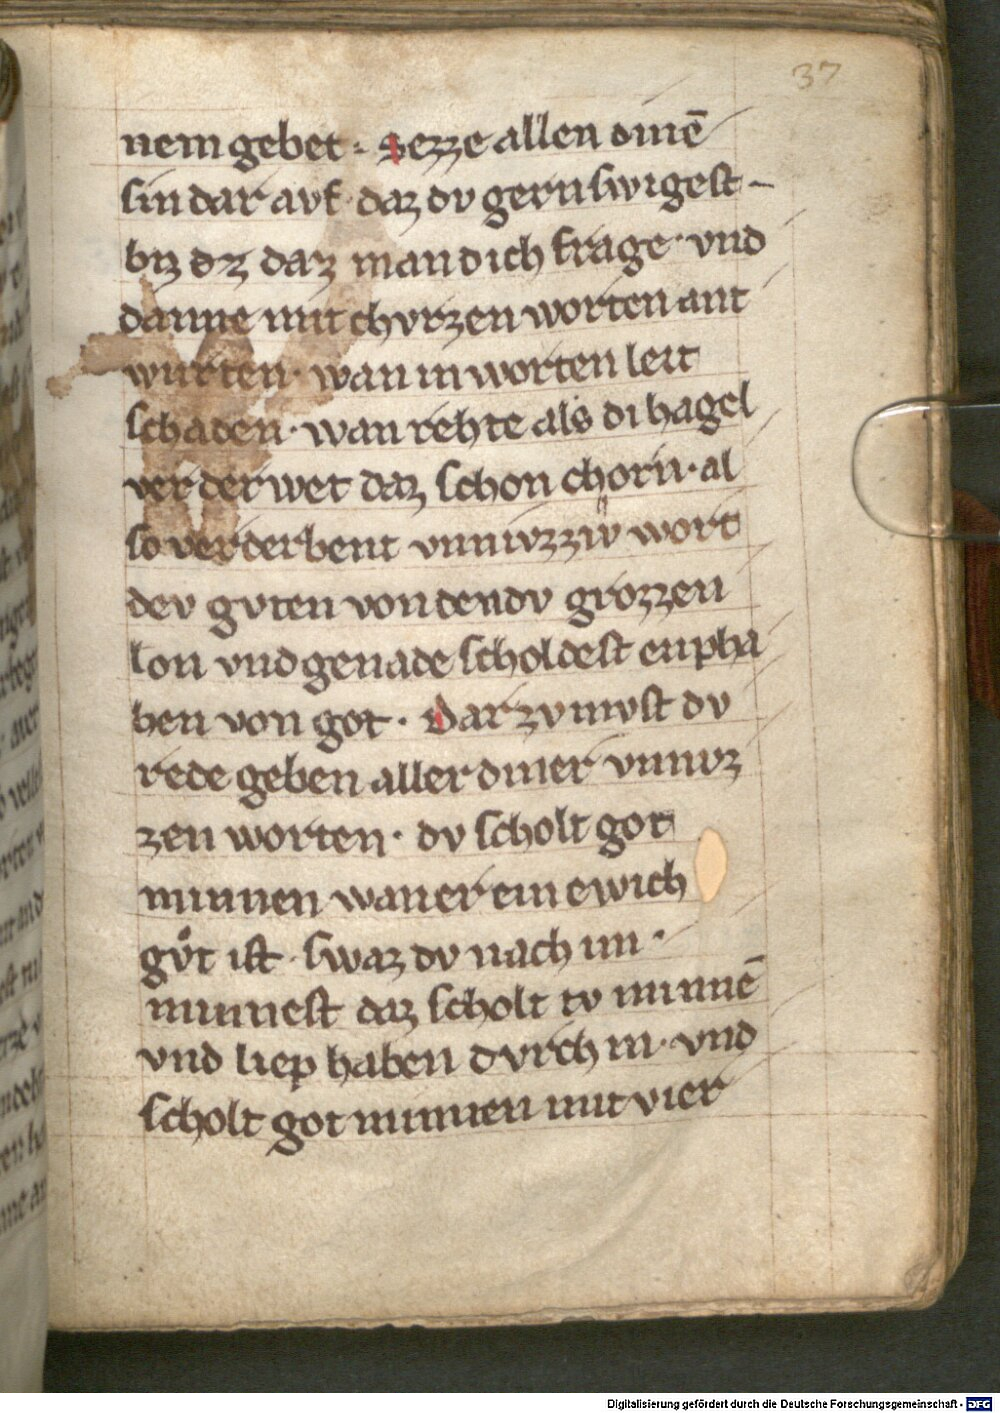 37
nem gebet · Sezze allen dinē
sin dar avf · daz dv gern swigest –
biz dz daz man dich frage · vnd
danne mit chvrzen worten ant
wurten · wan in worten leit
schaden · wan rehte als di hagel
verderwet daz schon chorn · al
so verderbent vnnvzziv wort
dev gvten von den dv grozzen
lon vnd genade scholdest enpha
hen von got · Dar zv mvst dv
rede geben aller diner vnnvz
zen worten · dv scholt got
minnen wan er ein ewich
gvͦt ist · swaz dv nach im ·
minnest daz scholt tv minnē
vnd liep haben dvrch in · vnd
scholt got minnen mit vier
Digitalisierung gefördert durch die Deutsche Forschungsgemeinschaft - DFG